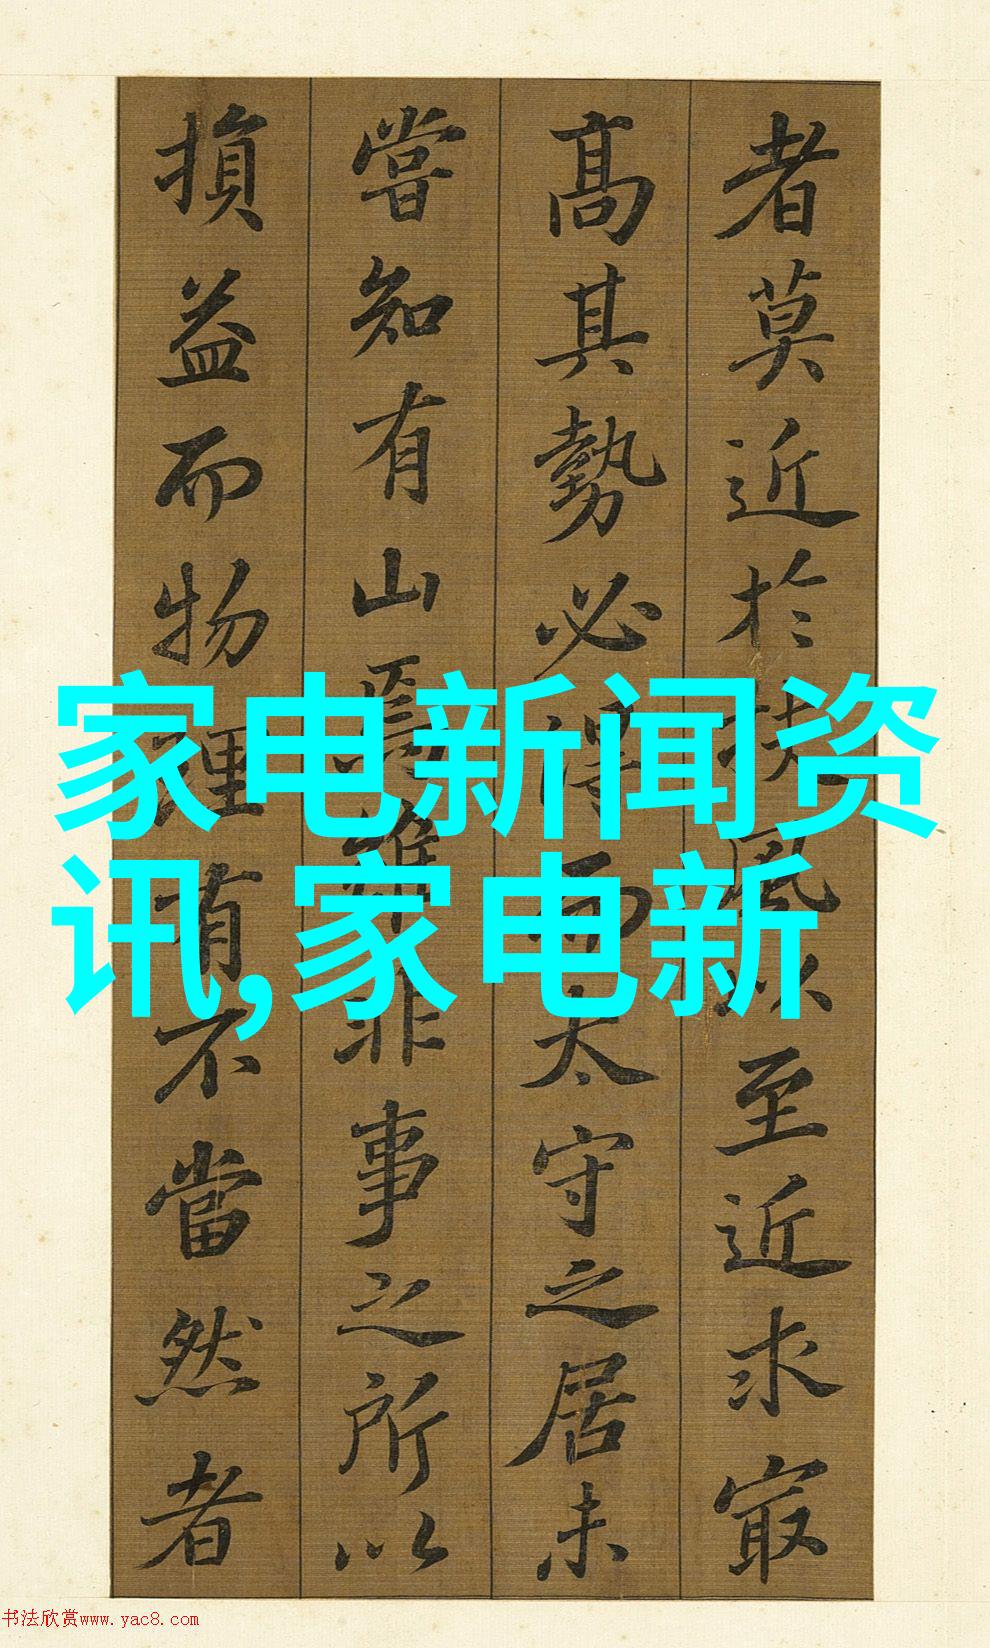 者莫近於扶風以至近求冣
高其勢必得而太守之居未
嘗知有山焉雖非事之所以
損益而物理有不當然者
家电新闻资
讯,家电新
书法欣赏www.yac8.com